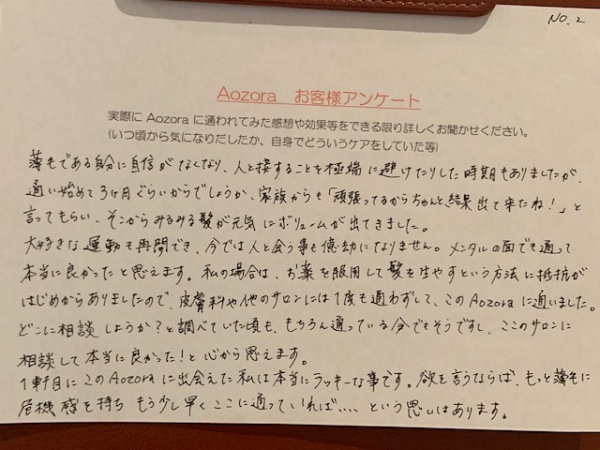 NO.2
Aozora お客様アンケート
実際に Aozora に通われてみた感想や効果等をできる限り詳しくお聞かせください。
(いつ頃から気になりだしたか、自身でどういうケアをしていた等)
薄毛である自分に自信がなくなり、人と接することを極端に避けたりした時期もありましたが、
通い始めて3ヶ月ぐらいからでしょうか、家族からも「頑張ってるからちゃんと結果出て来たね!」と
言ってもらい、そこからみるみる髪が元気にボリュームが出てきました。
大好きな運動も再開でき、今では人と会う事も億劫になりません。メンタルの面でも通って
本当に良かったと思えます。私の場合は、お薬を服用して髪を生やすという方法に抵抗が
はじめからありましたので、皮膚科や他のサロンには1度も通わずして、このAozoraに通いました。
どこに相談しようか?と調べていた頃も、もちろん通っている今でもそうですし、ここのサロンに
相談して本当に良かった!と心から思えます。
1軒目にこのAozoraに出会えた私は本当にラッキーな事です。欲を言うならば、もっと薄毛に
危機感を持ち もう少し早くここに通っていれば.... という思いはあります。